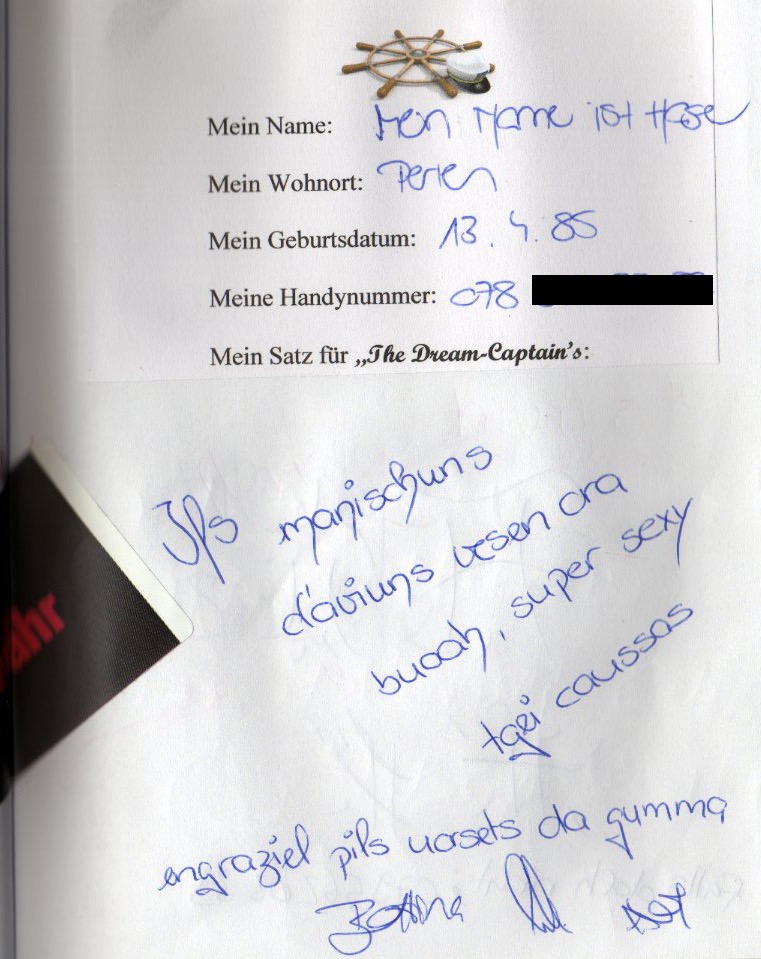 Mein Name: Mein Name ist Hase
Mein Wohnort: Perien
Mein Geburtsdatum: 13. 4. 85
Meine Handynummer: 078
Mein Satz für „The Dream-Captain's:
Ils manischuns
d'aviuns vesen ora
buaah, super sexy
tgei caussas
ahr
engraziel pils uorsets da gumma